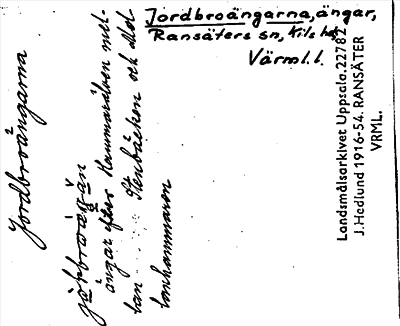 Jordbroängarna, ängar,
Ransäters sn, Kils hd
Värml. l.
Jordbroängarna
ängar efter Hammarälven mel-
lan Stenbäcken och Mol-
tanhammaren
Landsmålsarkivet Uppsala. 22782
J. Hedlund 1916-54. RANSÄTER
VRML.